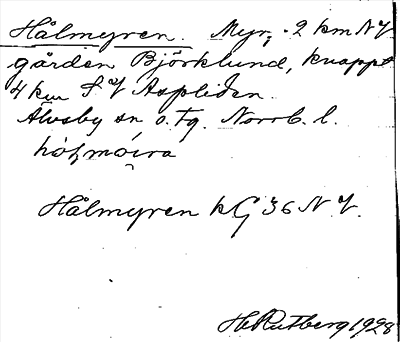 Hålmyren. Myr, 2 km NV
gården Björklund, knappt
4 km SV Aspliden.
Älvsby sn o. tg. Norrb. l.
Hålmyren kG 36 NV.
H. Rutberg 1928